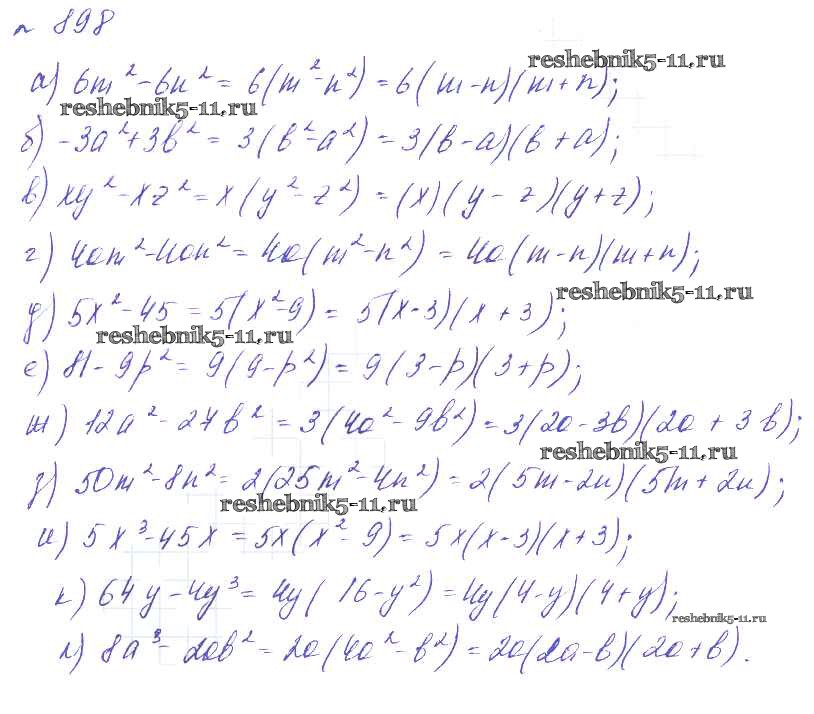 № 898
reshebnik5-11.ru
а) 6m² - 6n² = 6(m² - n²) = 6(m - n)(m + n);
reshebnik5-11.ru
б) -3a² + 3b² = 3(b² - a²) = 3(b - a)(b + a);
в) xy² - xz² = x(y² - z²) = (x)(y - z)(y + z);
г) 4am² - 4an² = 4a(m² - n²) = 4a(m - n)(m + n);
reshebnik5-11.ru
д) 5x² - 45 = 5(x² - 9) = 5(x - 3)(x + 3);
reshebnik5-11.ru
е) 81 - 9p² = 9(9 - p²) = 9(3 - p)(3 + p);
ж) 12a² - 27b² = 3(4a² - 9b²) = 3(2a - 3b)(2a + 3b);
reshebnik5-11.ru
з) 50m² - 8n² = 2(25m² - 4n²) = 2(5m - 2n)(5m + 2n);
reshebnik5-11.ru
и) 5x³ - 45x = 5x(x² - 9) = 5x(x - 3)(x + 3);
к) 64y - 4y³ = 4y(16 - y²) = 4y(4 - y)(4 + y);
reshebnik5-11.ru
л) 8a³ - 2ab² = 2a(4a² - b²) = 2a(2a - b)(2a + b).